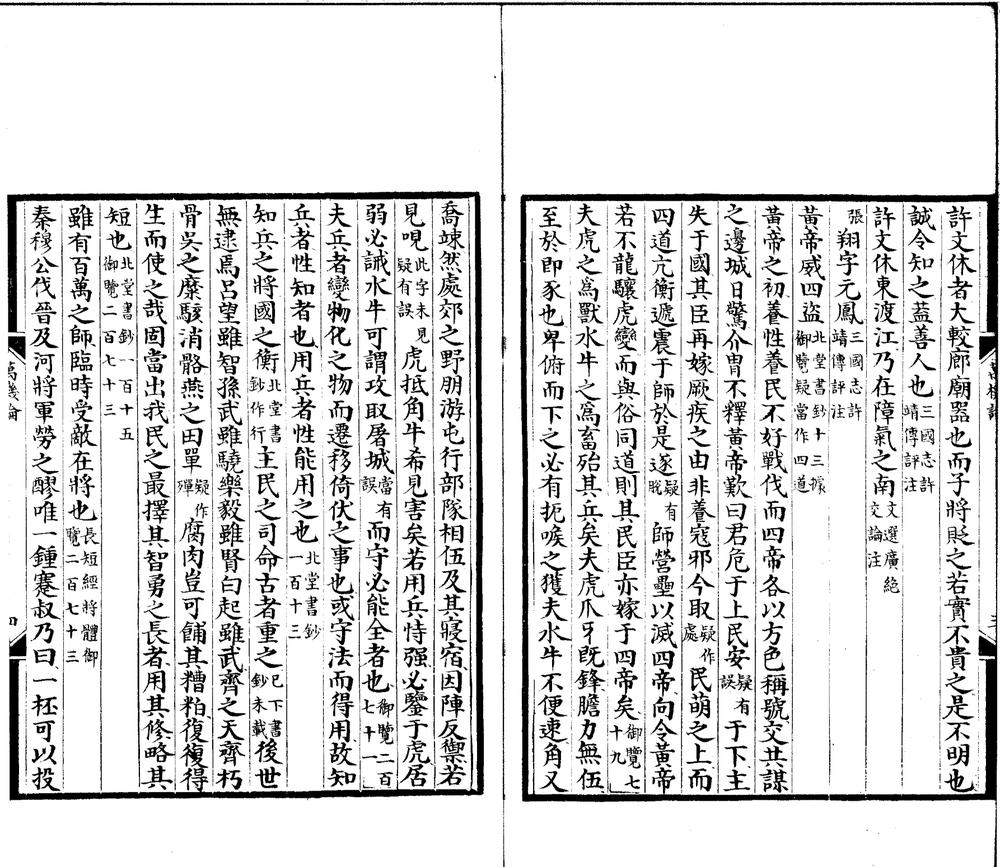 許文休者大較廊廟器也而子將貶之若實不貴之是不明也
誠令知之蓋善人也三國志許靖傳評注
許文休東渡江乃在障氣之南文選廣絕交論注
張翔字元鳳三國志許靖傳評注
黃帝威四盜北堂書鈔十三據御覽疑當作四道
黃帝之初養性養民不好戰伐而四帝各以方色稱號交共謀
之邊城日驚介冑不釋黃帝歎曰君危于上民安疑有誤于下主
失于國其臣再嫁厥疾之由非養寇邪今取疑作處民萌之上而
四道亢衡遞震于師於是遂疑有脫師營壘以滅四帝向令黃帝
若不龍驤虎變而與俗同道則其民臣亦嫁于四帝矣御覽七十九
夫虎之為獸水牛之為畜殆其兵矣夫虎爪牙既鋒膽力無伍
至於即豕也卑俯而下之必有扼喉之獲夫水牛不便速角又
喬竦然處郊之野朋游屯行部隊相伍及其寢宿因陣反禦若
見哯此字未見疑有誤虎抵角牛希見害矣若用兵恃强必鑒于虎居
弱必誡水牛可謂攻取屠城當有誤而守必能全者也御覽二百七十一
夫兵者變物化之物而遷移倚伏之事也或守法而得用故知
兵者性知者也用兵者性能用之也北堂書鈔一百十三
知兵之將國之衡北堂書鈔作行主民之司命古者重之已下書鈔未載後世
無逮焉呂望雖智孫武雖驍樂毅雖賢白起雖武齊之天齊朽
骨吳之糜骸消骼燕之田單疑作殫腐肉豈可餔其糟粕復復得
生而使之哉固當出我民之最擇其智勇之長者用其修略其
短也北堂書鈔一百十五御覽二百七十三
雖有百萬之師臨時受敵在將也長短經將體御覽二百七十三
秦穆公伐晉及河將軍勞之醪唯一鍾蹇叔乃曰一杯可以投
萬機論
四